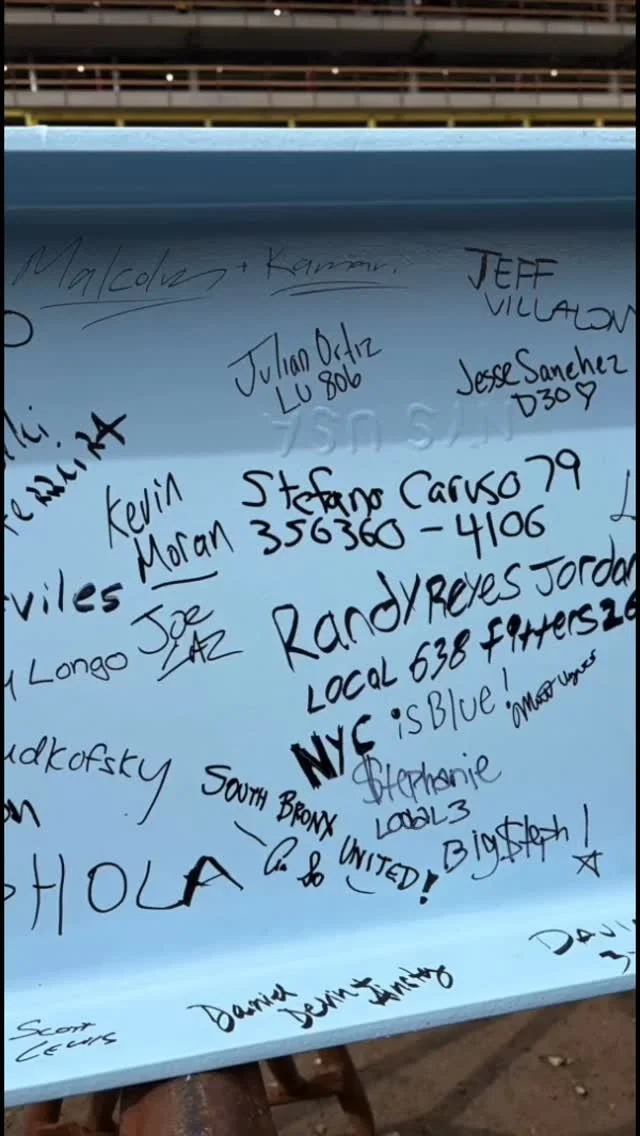 Malcolm + Kamari
JEFF
VILLALON
Julian Ortiz
LU 806
Jesse Sanchez
D30♡
NYS USA
Kevin
Moran
Stefano Caruso 79
356360 - 4106
viles
Joe
LAZ
Randy Reyes Jordan
LOCAL 638 fitters 26
Longo
NYC is Blue!
udkofsky
$tephanie
Local 3
SOUTH BRONX
UNITED!
Big$teph!
HOLA
DAVI
Daniel
Devin +
Scott
Lewis